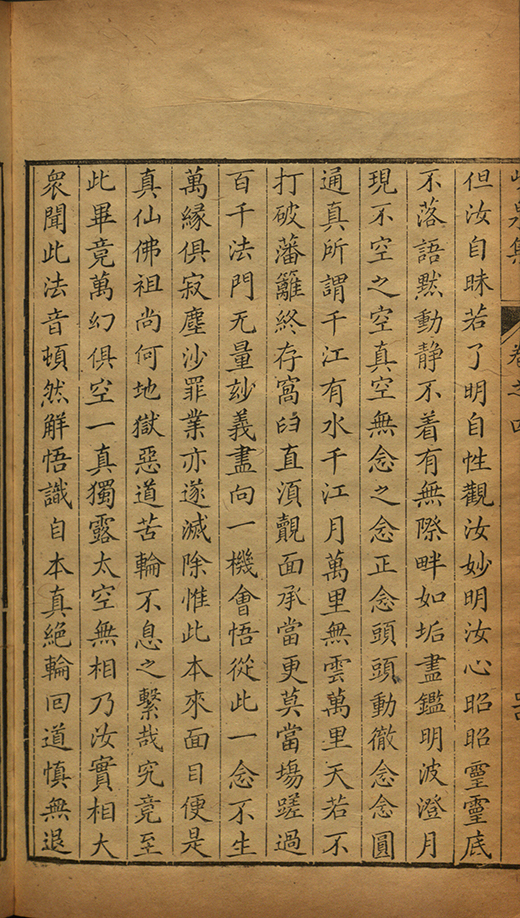 卷之四
但汝自昧若了明自性觀汝妙明汝心昭昭靈靈底
不落語默動静不着有無際畔如垢盡鑑明波澄月
現不空之空真空無念之念正念頭頭動徹念念圓
通真所謂千江有水千江月萬里無雲萬里天若不
打破藩籬終存窩臼直湏覿面承當更莫當場蹉過
百千法門无量玅義盡向一機會悟從此一念不生
萬縁俱寂塵沙罪業亦遂滅除惟此本來面目便是
真仙佛祖尚何地獄惡道苦輪不息之繫哉究竟至
此畢竟萬幻俱空一真獨露太空無相乃汝實相大
衆聞此法音頓然觧悟識自本真絶輪回道慎無退